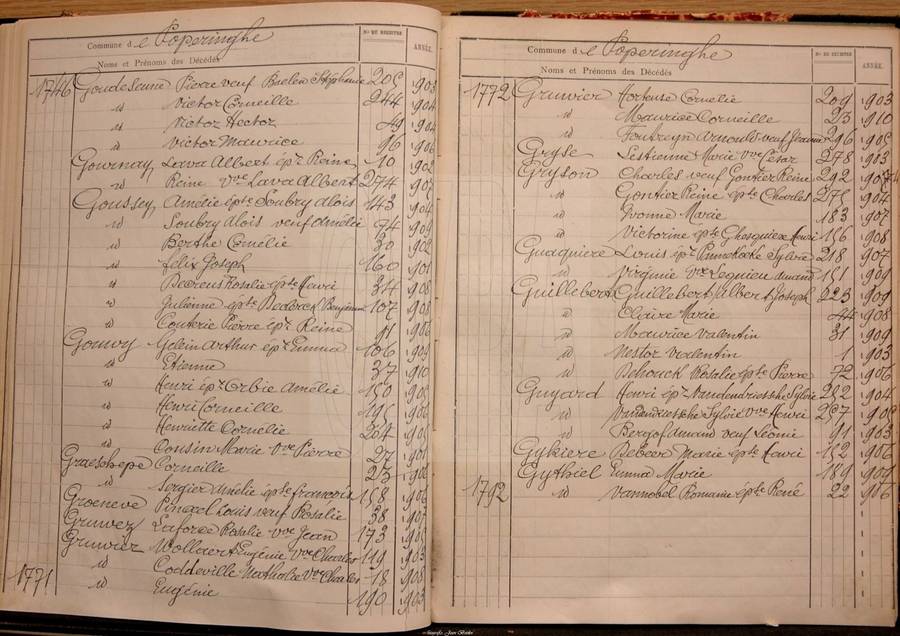 Commune de Poperinghe
No DU REGISTRE
ANNÉE.
Noms et Prénoms des Décédés
1746 Goudeseune Pierre veuf Baelen Stéphanie 205 903
id Victor Corneille 244 904
id Victor Hector 49 904
id Victor Maurice 96 906
Gournay Lava Albert épx Reine 10 902
id Reine vve Lava Albert 274 907
Goussey Amélie épte Soubry Alois 143 904
id Soubry Alois veuf Amélie 74 909
id Berthe Emélie 30 902
id Félix Joseph 160 901
id Beerens Rosalie épte Henri 34 908
id Julienne épte Dederck Benjamin 107 908
id Couterie Pierre épx Reine 91 906
Gouwy Gelein Arthur épx Emma 106 909
id Etienne 37 910
id Henri épx Orbie Amélie 150 905
id Henri Corneille 195 906
id Henriette Cornélie 204 905
id Cousin Marie vve Pierre 27 901
Graeshepe Corneille 23 906
id Sergier Amélie épte francois 158 906
Groeneve Pineel Louis veuf Rosalie 38 907
Gruwez Laforce Rosalie vve Jean 173 905
Gruwier Wollaert Eugénie vve Charles 119 903
id Coddeville Nathalie vve Charles 18 908
1771 id Eugénie 190 903
Commune de Poperinghe
No DU REGISTRE
ANNÉE.
Noms et Prénoms des Décédés
1772 Gruwier Hortense Cornélie 209 903
id Maurice Corneille 23 910
id veuf Jeanne 296 905
Gryse Lestienne Marie vve César 278 903
Gryson Charles veuf Gontier Reine 292 907
id Gontier Reine épte Charles 275 904
id Yvonne Marie 183 907
id Victorine épte Ghesquiere Henri 156 908
Guaguiere Louis épx Sylvie 218 907
id Virginie vve Lequien Amand 151 909
Guillebert Guillebert Albert Joseph 223 909
id Claire Marie 44 908
id Maurice Valentin 31 909
id Nestor Valentin 1 903
id Dehouck Rosalie épte Pierre 72 906
Guyard Henri épx Vandendriessche Sylvie 252 904
id Vandendriessche Sylvie vve Henri 257 906
id Bergof Amand veuf Léonie 91 903
Gykiere Debeer Marie épte Henri 152 906
Gythiel Emma Marie 189 907
1792 id Vannobel Romanie épte René 22 906